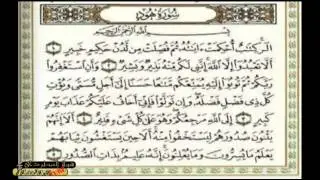 سُورَةُ هُودٍ
بِسْمِ اللَّهِ الرَّحْمَٰنِ الرَّحِيمِ
الٓر كِتَابٌ أُحْكِمَتْ آيَاتُهُ ثُمَّ فُصِّلَتْ مِن لَّدُنْ حَكِيمٍ خَبِيرٍ ١
أَلَّا تَعْبُدُوا إِلَّا اللَّهَ إِنَّنِي لَكُم مِّنْهُ نَذِيرٌ وَبَشِيرٌ ٢ وَأَنِ اسْتَغْفِرُوا
رَبَّكُمْ ثُمَّ تُوبُوا إِلَيْهِ يُمَتِّعْكُم مَّتَاعًا حَسَنًا إِلَىٰ أَجَلٍ مُّسَمًّى وَيُؤْتِ
كُلَّ ذِي فَضْلٍ فَضْلَهُ وَإِن تَوَلَّوْا فَإِنِّي أَخَافُ عَلَيْكُمْ عَذَابَ يَوْمٍ
كَبِيرٍ ٣ إِلَى اللَّهِ مَرْجِعُكُمْ وَهُوَ عَلَىٰ كُلِّ شَيْءٍ قَدِيرٌ ٤ أَلَا إِنَّهُمْ
يَثْنُونَ صُدُورَهُمْ لِيَسْتَخْفُوا مِنْهُ أَلَا حِينَ يَسْتَغْشُونَ ثِيَابَهُمْ
يَعْلَمُ مَا يُسِرُّونَ وَمَا يُعْلِنُونَ إِنَّهُ عَلِيمٌ بِذَاتِ الصُّدُورِ ٥